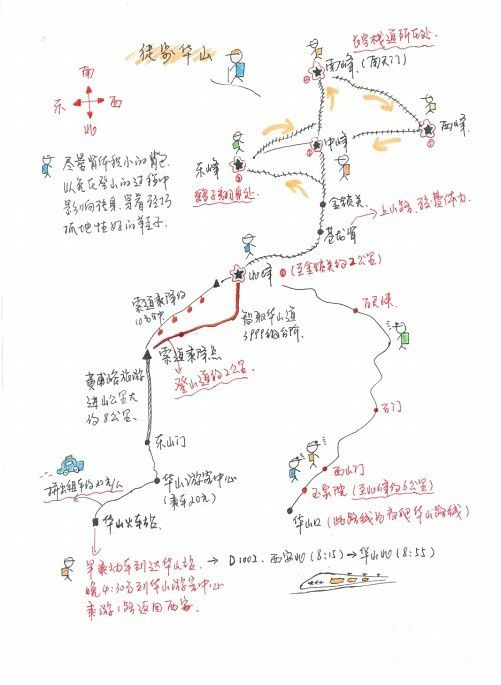 徒步华山
南
东
西
北
尽量背体积小的背包
以免在登山的过程中
影响转身,穿着轻巧
抓地性好的鞋子.
长空栈道所在处.
南峰.(南天门)
西峰
中峰
东峰
鹞子翻身处
金锁关
苍龙岭
上山路,较费体力.
北峰
(至金锁关约2公里)
索道乘降约
10分钟
智取华山道
3999级台阶.
索道乘降点
登山道约2公里.
黄甫峪旅游
进山公里大
约8公里.
百尺峡
石门
东山门
西山门
玉泉院
(至北峰约6公里)
华山口
(此路线为夜爬华山路线)
拼出租车约20元/人
华山游客中心
(乘车20元)
华山火车站.
早乘动车到达华山站.
晚4:30到华山游客中心
乘游1路返回西安.
→ D1002.西安北(8:15)→华山北(8:55)